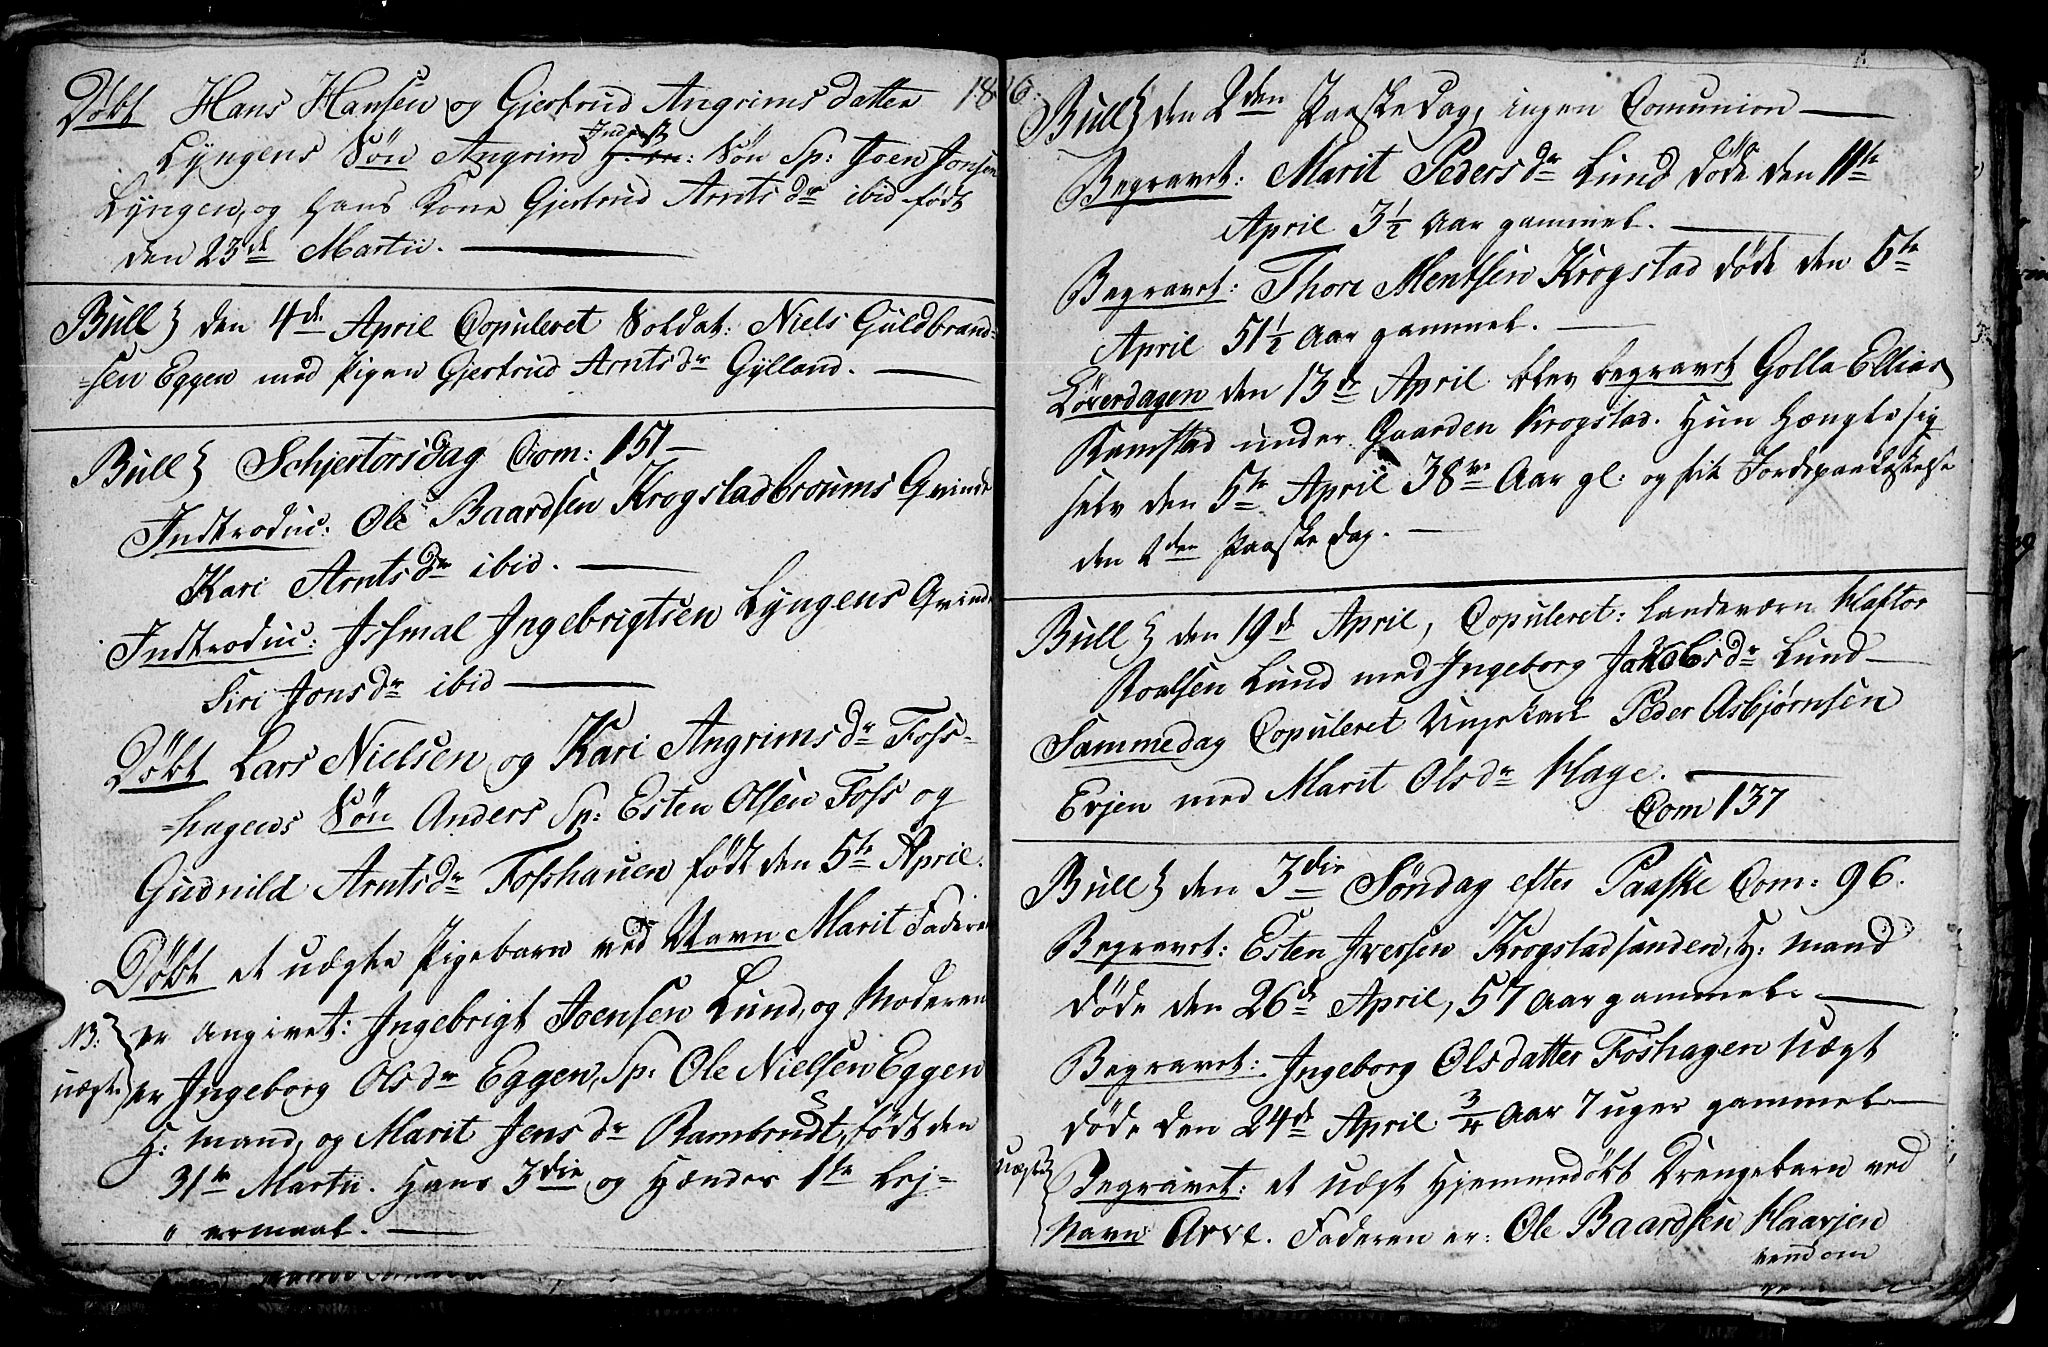 Døbt Hans Hansen og Gjertrud Angrims datter 1806.
Lyngens Søn Angrim Søn Sp: Joen Jonsen
Lyngen, og hans Kone Gjertrud Arntsdr ibid født
den 23de Martii.
Bull} den 4de April Copuleret Soldat: Niels Guldbrand-
-sen Eggen med Pigen Gjertrud Arntsdr Gylland.
Bull} Schjertorsdag Com: 151
Indtroduc: Ole Baardsen Krogstadbroums Qvinde
Kari Arntsdr ibid.
Indtroduc: Issmal Ingebrigtsen Lyngens Qvinde
Siri Jonsdr ibid
Døbt Lars Nielsen og Kari Angrimsdr Foss-
-hagens Søn Anders Sp: Esten Olsen Foss og
Gudnild Arntsdr Fosshauen født den 5te April.
Døbt et uægte Pigebarn ved Navn Marit Faderen
NB: uægte} er angivet: Ingebrigt Joensen Lund, og Moderen
er Ingeborg Olsdr Eggen, Sp: Ole Nielsen Eggen
G: mand, og Marit Jensdr Rambrudt, født den
31te Martii. Hans 3die og Hændes 1te Lej-
" ermaal.
Bull} den 2den Paaske Dag, ingen Comunion
Begravet: Marit Pedersdr Lund døde den 11te
April 3 1/2 Aar gammel.
Begravet: Thore Mentsen Krogstad døde den 5te
April 51 1/2 Aar gammel.
Løverdagen den 13de April blev begravet Golla Ellias
Kamstad under Gaarden Krogstad. Hun Hængte sig
selv den 5te April 38 Aar gl: og fik Jordspaakastelse
den 2den Paaske Dag.
Bull} den 19de April, Copuleret: Landeværn Klaftor
Roalsen Lund med Ingeborg Jakobsdr Lund
Sammedag Copuleret Ungekarl Peder Asbjørnsen
Evjen med Marit Olsdr Hage.
Com 137
Bull} den 3die Søndag efter Paaske Com: 96.
Begravet: Esten Iversen Krogstadsanden, G: mand
døde den 26de April, 57 Aar gammel.
Begravet: Ingeborg Olsdatter Foshagen uægt
døde den 24de April 3/4 Aar 7 uger gammel
uægte} Begravet: et uægt Hjemmedøbt Drengebarn ved
Navn Arve. Faderen er: Ole Baardsen Haavjen
vend om